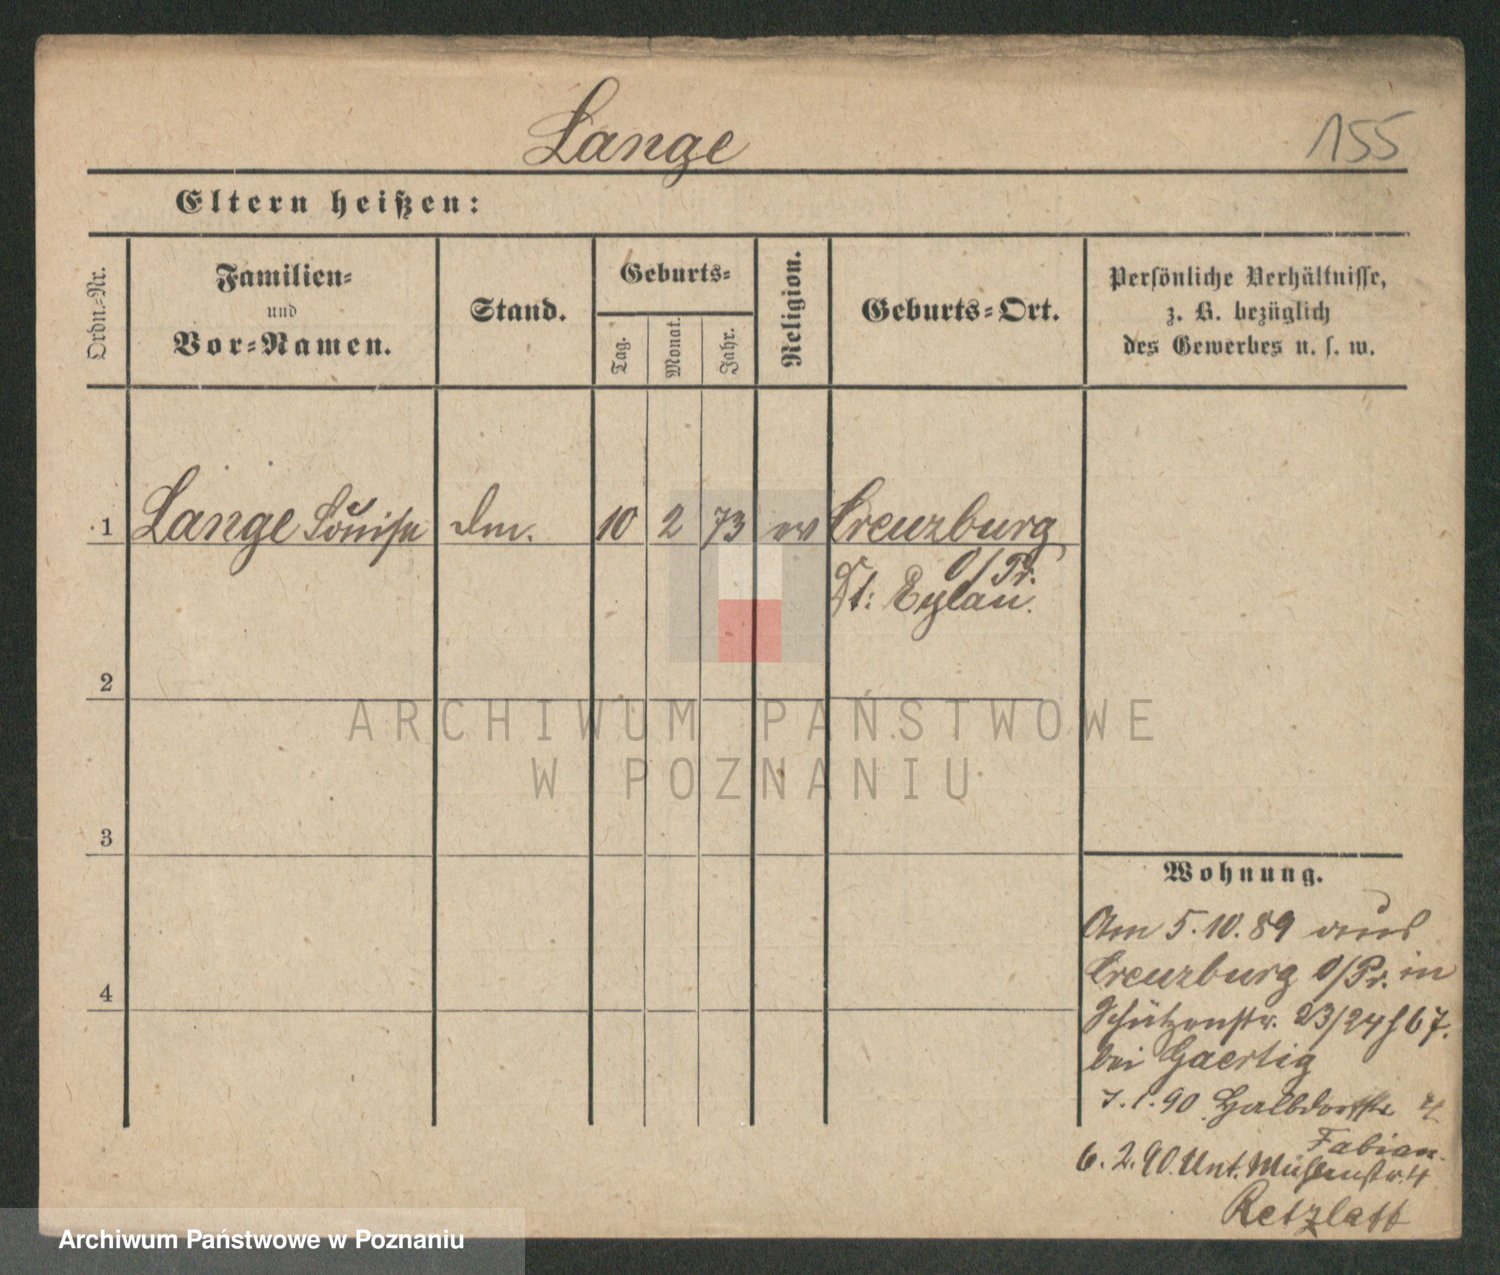 Lange
155
Eltern heißen:
Ordn.-Nr.
Familien-
und
Vor-Namen.
Stand.
Geburts-
Tag.
Monat.
Jahr.
Religion.
Geburts-Ort.
Persönliche Verhältnisse,
z. B. bezüglich
des Gewerbes u. s. w.
1 Lange Louise 10 2 73 ev Creuzburg
O/Pr.
Dt: Eylau.
2
3
4
Wohnung.
Am 5.10.89 aus
Creuzburg O/Pr. in
Schützenstr. 23/24
bei Gaertig
7.1.90 Halbdorfstr
Fabian
6.2.90. Unt. Mühlenstr. 4
Retzlaff
ARCHIWUM PAŃSTWOWE
W POZNANIU
Archiwum Państwowe w Poznaniu